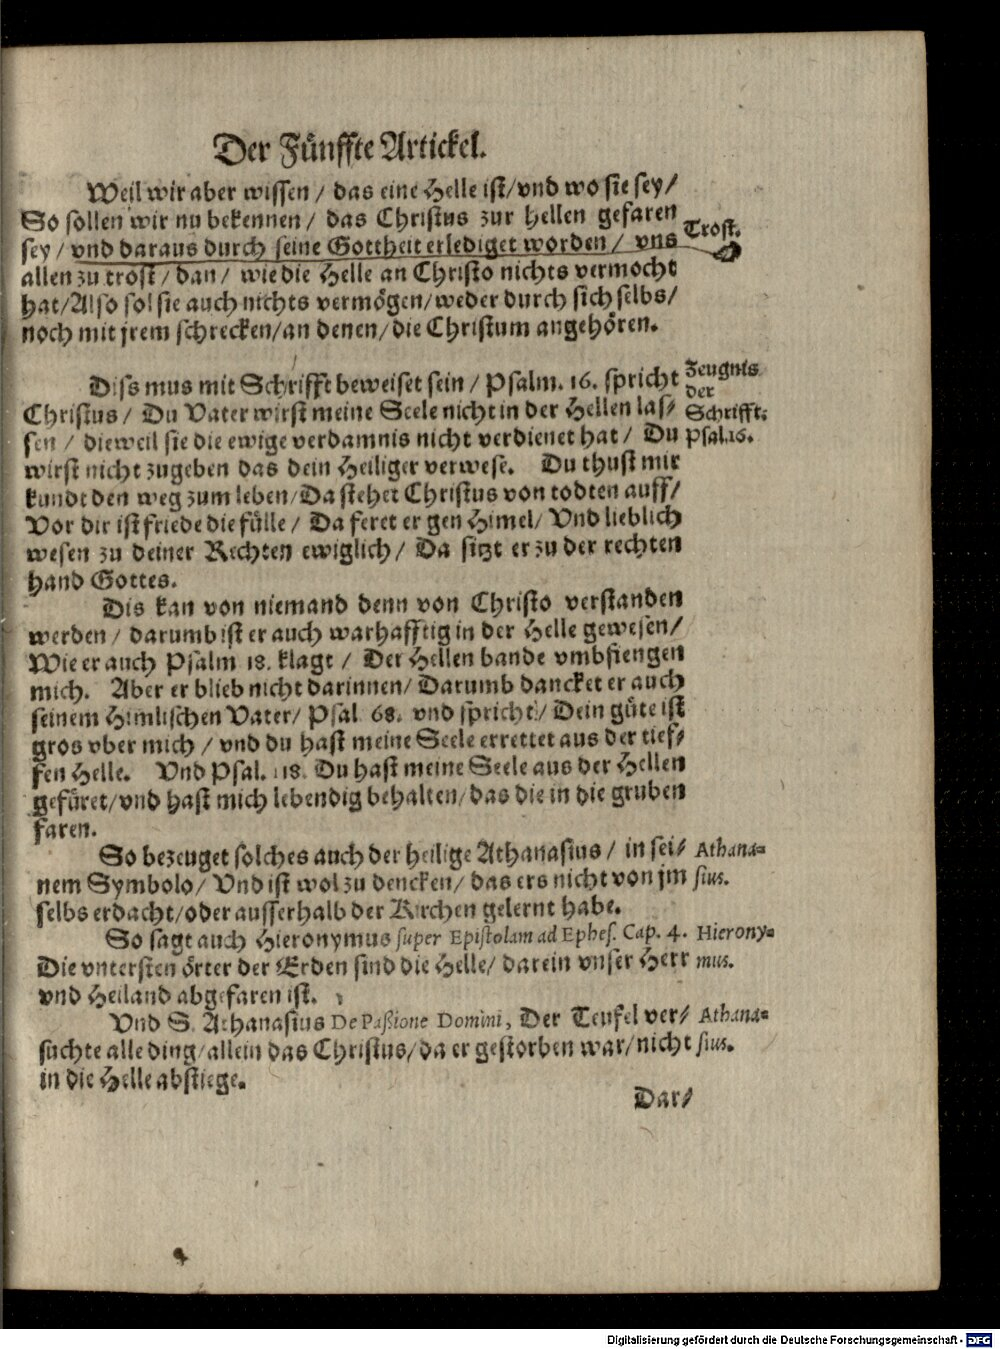 Der Fünffte Artickel.
Weil wir aber wissen / das eine Helle ist / vnd wo sie sey /
So sollen wir nu bekennen / das Christus zur Hellen gefaren
sey / vnd daraus durch seine Gottheit erlediget worden / vns
Trost.
allen zu trost / dan / wie die Helle an Christo nichts vermocht
hat / Also sol sie auch nichts vermögen / weder durch sich selbs /
noch mit jrem schrecken / an denen / die Christum angehören.
Diss mus mit Schrifft beweiset sein / Psalm. 16. spricht
Christus / Du Vater wirst meine Seele nicht in der Hellen las-
sen / dieweil sie die ewige verdamnis nicht verdienet hat / Du
Zeugnis
der
Schrifft.
Psal.16.
wirst nicht zugeben das dein Heiliger verwese. Du thust mir
kundt den weg zum leben / Da stehet Christus von todten auff /
Vor dir ist friede die fülle / Da feret er gen Himel / Vnd lieblich
wesen zu deiner Rechten ewiglich / Da sitzt er zu der rechten
hand Gottes.
Dis kan von niemand denn von Christo verstanden
werden / darumb ist er auch warhafftig in der Helle gewesen /
Wie er auch Psalm 18. klagt / Der Hellen bande vmbfiengen
mich. Aber er blieb nicht darinnen / Darumb dancket er auch
seinem Himlischen Vater / Psal 68. vnd spricht / Dein güte ist
gros vber mich / vnd du hast meine Seele errettet aus der tief-
fen Helle. Vnd Psal. 118. Du hast meine Seele aus der Hellen
gefüret / vnd hast mich lebendig behalten / das die in die gruben
faren.
So bezeuget solches auch der heilige Athanasius / in sei-
nem Symbolo / Vnd ist wol zu dencken / das ers nicht von jm
Athana-
sius.
selbs erdacht / oder ausserhalb der Kirchen gelernt habe.
So sagt auch Hieronymus super Epistolam ad Ephes. Cap. 4.
Die vntersten örter der Erden sind die Helle / darein vnser Herr
Hierony-
mus.
vnd Heiland abgefaren ist.
Vnd S. Athanasius De Paßione Domini, Der Teufel ver-
suchte alle ding / allein das Christus / da er gestorben war / nicht
Athana-
sius.
in die Helle abstiege.
Dar-
Digitalisierung gefördert durch die Deutsche Forschungsgemeinschaft - DFG